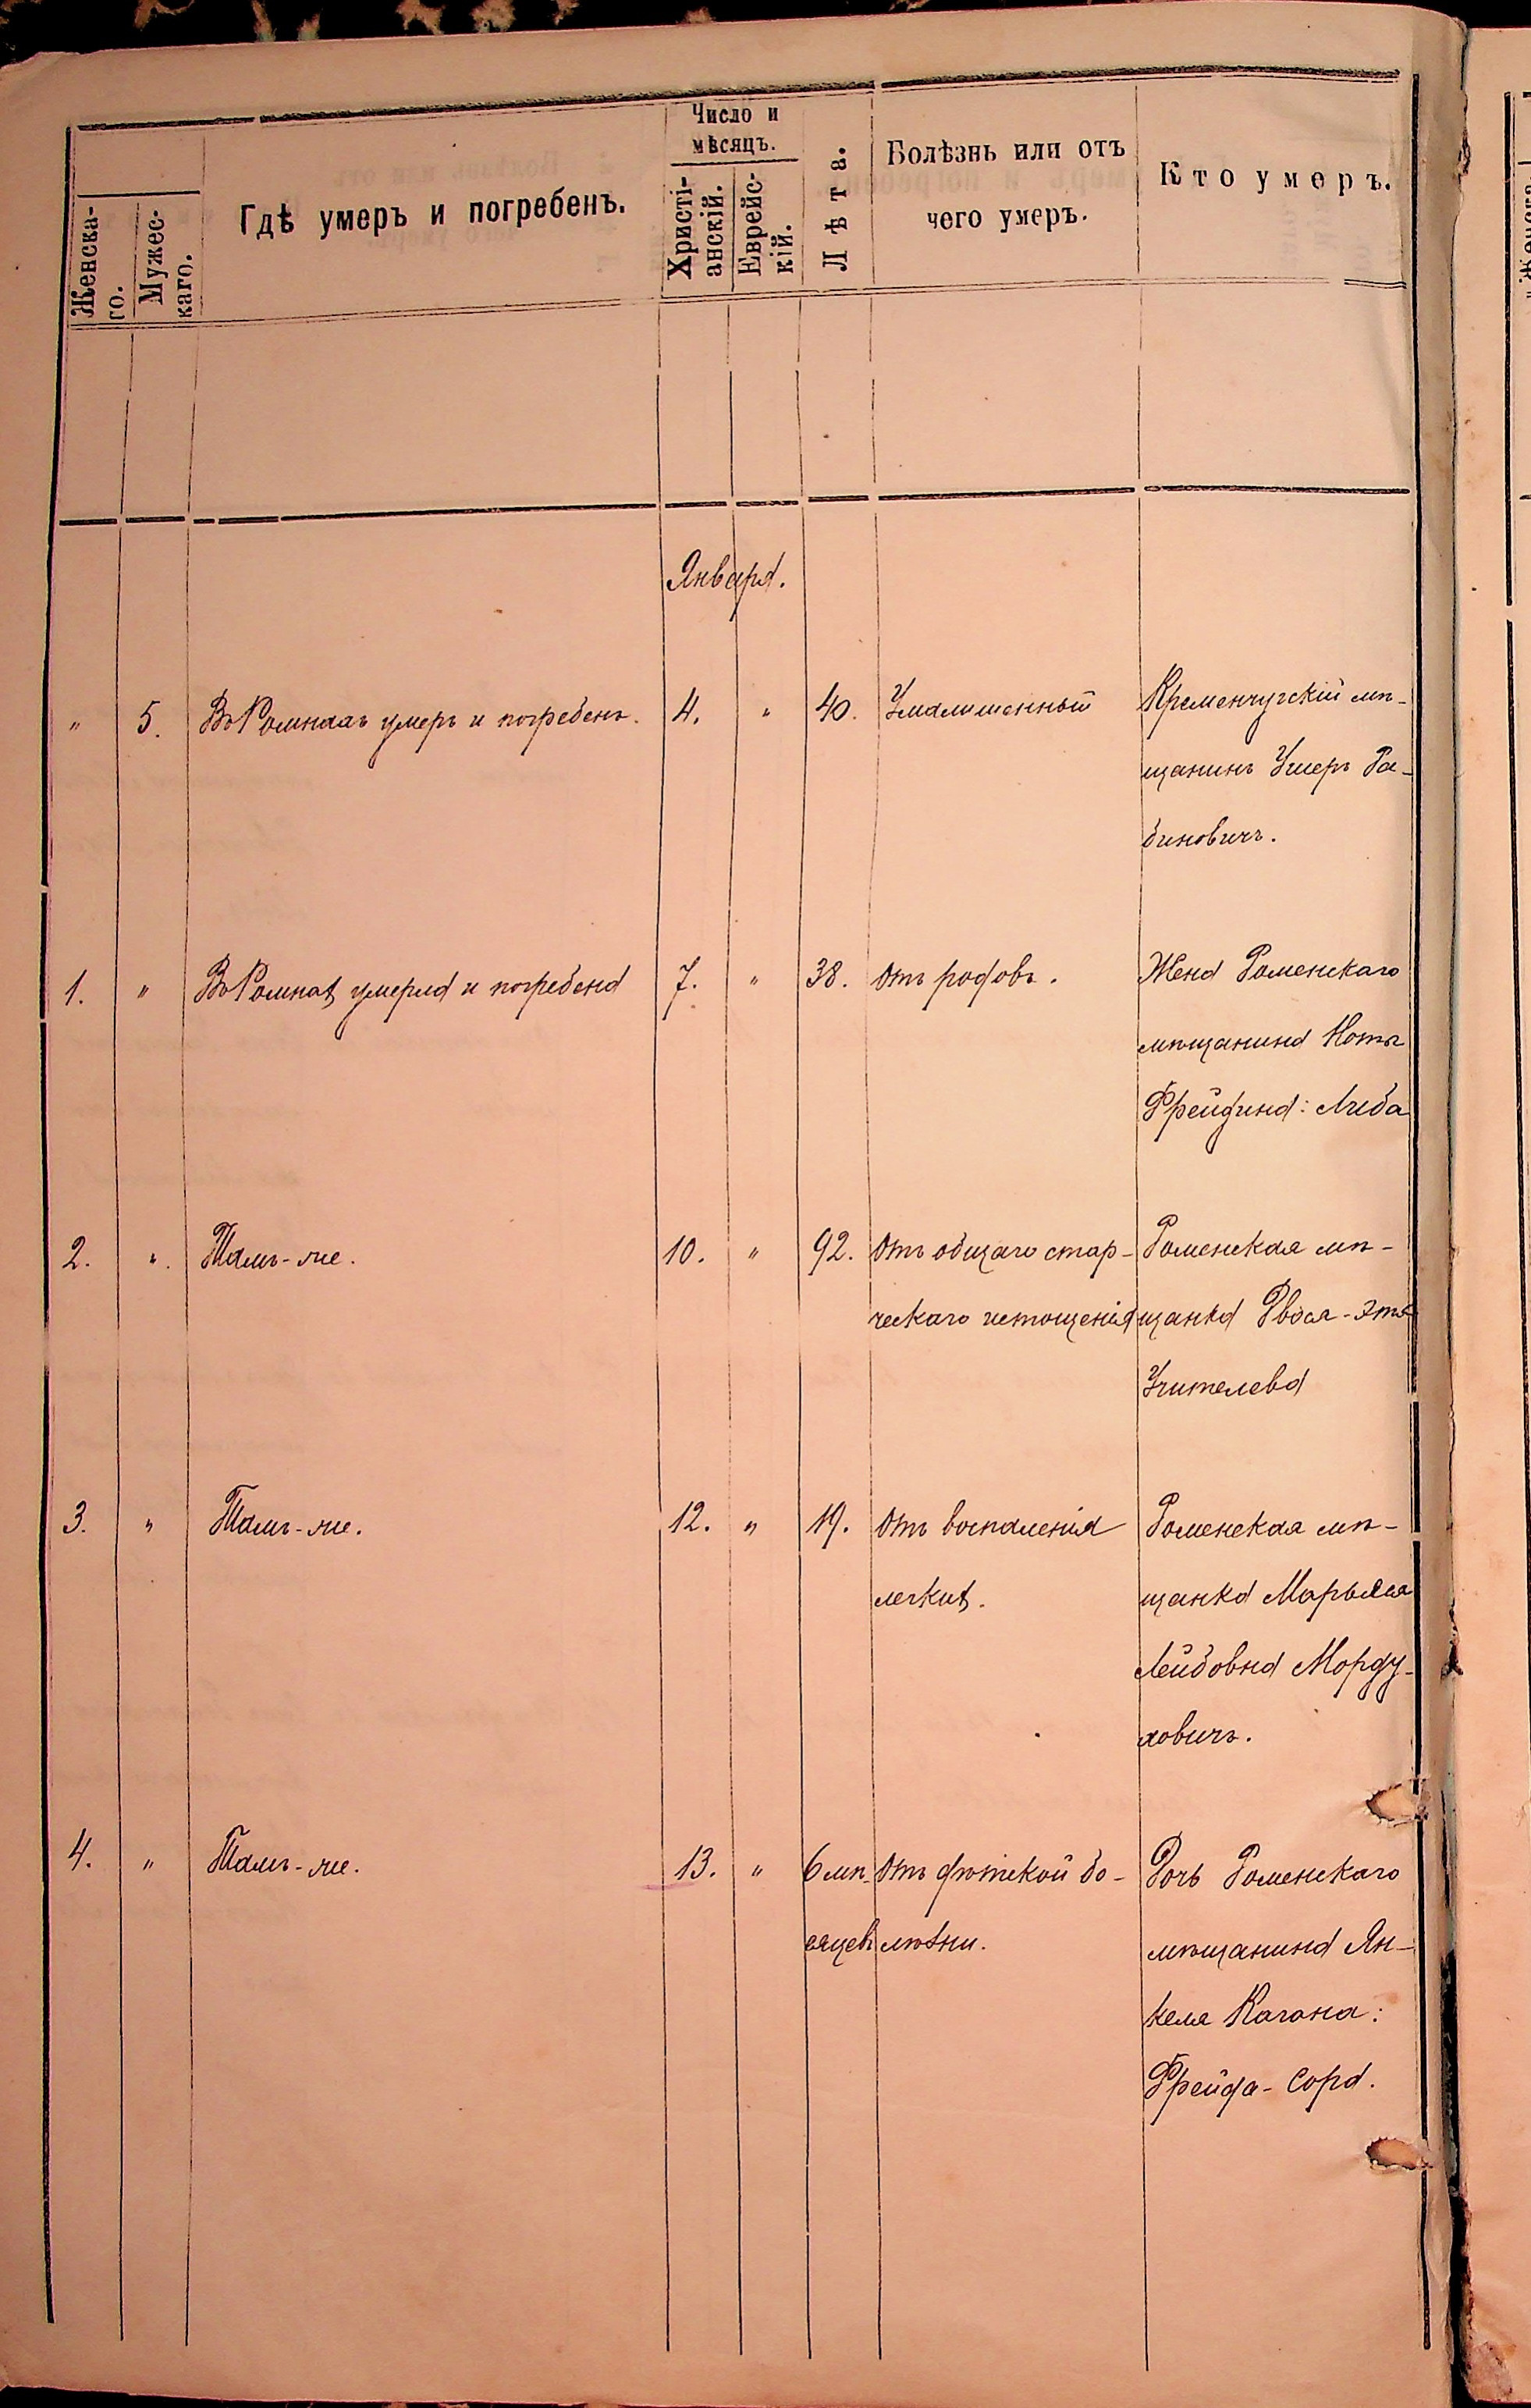 Женска-
го.
Мужес-
каго.
Гдѣ умеръ и погребенъ.
Число и
мѣсяцъ.
Христі-
анскій.
Еврейс-
кій.
Лѣта.
Болѣзнь или отъ
чего умеръ.
Кто умеръ.
Января.
" 5. Въ Ромнахъ умеръ и погребенъ. 4. " 40. Умалишенный Кременчугскій мѣ-
щанинъ Ушеръ Ра-
биновичъ.
1. " Въ Ромнахъ умерла и погребена 7. " 38. Отъ родовъ. Жена Роменскаго
мѣщанина Ноты
Фрейдина: Либа
2. " Тамъ-же. 10. " 92. Отъ общаго стар- Роменская мѣ-
ческаго истощенія щанка Двося-Этя
Учителева
3. " Тамъ-же. 12. " 19. Отъ воспаленія Роменская мѣ-
легкихъ. щанка Марьяся
Лейбовна Морду-
ховичъ.
4. " Тамъ-же. 13. " 6 мѣ- Отъ дѣтской бо- Дочь Роменскаго
сяцевъ лѣзни. мѣщанина Ян-
келя Кагана:
Фрейда-Сора.